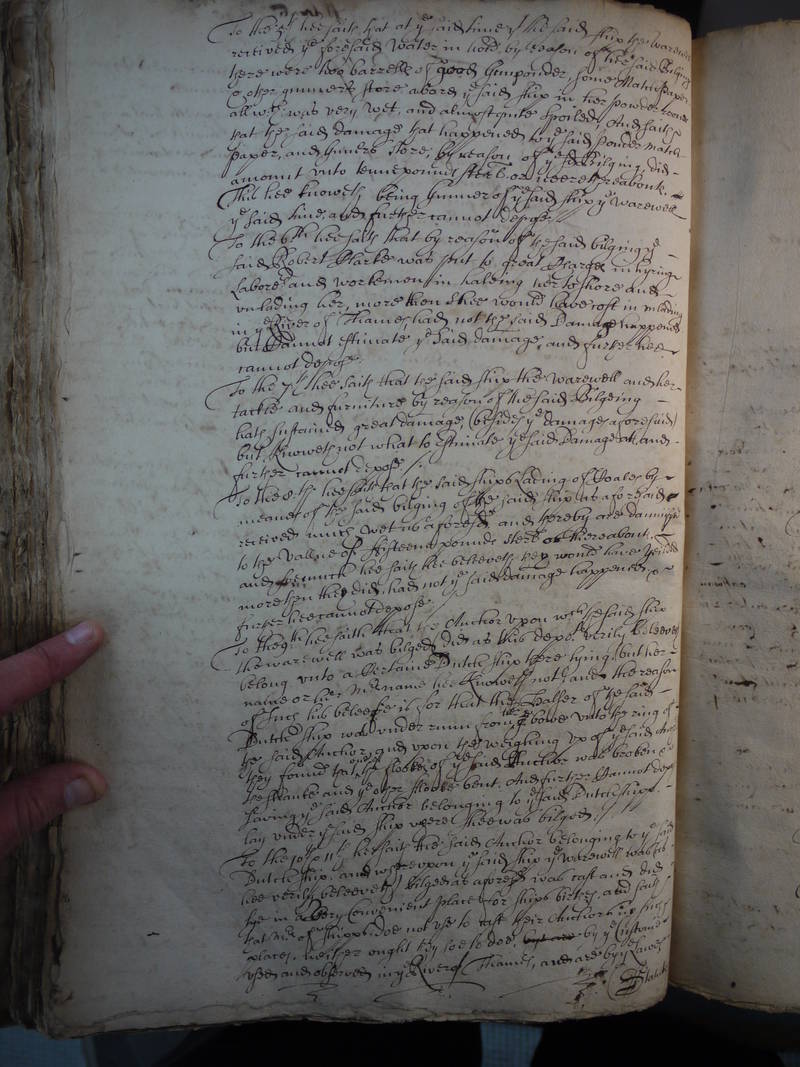 To the 5th hee saith that at ye said time ye the said ship the Warewell
received ye foresaid water in hold, by reason of her said Bilging
there were two barrells of good Gunpouder, some Match, paper
& other gunners store aboard ye said ship in her powder roome
all wch was very wet, and almost quite spoiled, And saith
that the said damage that happened to ye said pouder match
paper, and Gunners store, by reason of ye sd bilging, did
amount unto tenn pounds sterl. or neere thereabouts.
This hee knoweth being Gunner of ye said ship ye Warewell
ye said time, and further cannot depose
To the 6th hee saith that by reason of the said bilging ye
said Robert Clarke was put to great charges in hyring
Laborers and workemen in haleing her to shore and
unlading her, more then shee would have cost in unlading
in ye River of Thames, had not the said Damage happened
but cannot estimate ye said damage, and further hee
cannot depose.
To the 7th hee saith that the said ship the Warewell and her
tackle and furniture by reason of the said Bilgeing
hath sustained great damage (besides ye damages aforesaid)
but knoweth not what to estimate ye said Damage att, and
further cannot depose
To the 8th hee saith that the said ships Lading of Coales by
meanes of the said bilging of the said ship as aforesaid
received much wet as aforesd, and thereby are damnified
to the vallue of fifteene pounds sterl or thereabouts.
and soe much hee saith hee beleeveth they would have yeilded
more then they did, had not ye said damage happened, &
further hee cannot depose.
To the 9th hee saith that the Anchor upon wch the said ship
the warewell was bilged, did as this depot verily beleeves
belong unto a Certaine Dutch ship there lying, but her
name or her Mrs name hee knoweth not, and the reason
of such his beleefe is for that the Halser of the said
Dutch ship was under runn from her bowe unto the ring of
the said Anchor, and upon the weighing up of ye said Anchor
they found that one the flookes of ye said Anchor was broken &
the shanke and ye other flooke bent. And further cannot depose
saving ye said Anchor belonging to ye said Dutch shipp.
lay under ye said ship where shee was bilged.
To the 10th & 11th hee saith the said Anchor belonging to ye said
Dutch ship, and whereupon ye said ship ye Warewell was (as
hee verily beleeveth) bilged as aforesd was cast and did
lye in a very Convenient place for ships birthes, and saith
that Mrs of shipps doe not use to cast their Anchors in such
places, neither ought they soe to doe, by ye Custome
used and observed in ye River of Thames, and are by ye Lawes
& Statute